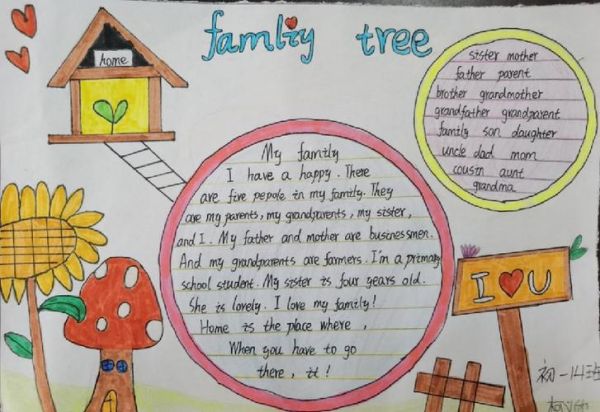 famliy tree
home
sister mother
father parent
brother grandmother
grandfather grandparent
family son daughter
uncle dad mom
cousin aunt
grandma
My family
I have a happy. There
are five pepole in my family. They
are my parents, my grandparents, my sister,
and I. My father and mother are businessmen.
And my grandparents are farmers. I'm a primary
school student. My sister is four years old.
She is lovely. I love my family!
Home is the place where ,
When you have to go
there, it!
I ♥ U
初一14班